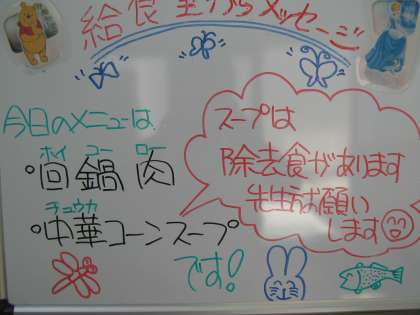 給食室からメッセージ
今日のメニューは
ホイ コー ロー
°回鍋肉
チュウカ
°中華コーンスープ
です!
スープは
除去食があります
先生方お願い
します